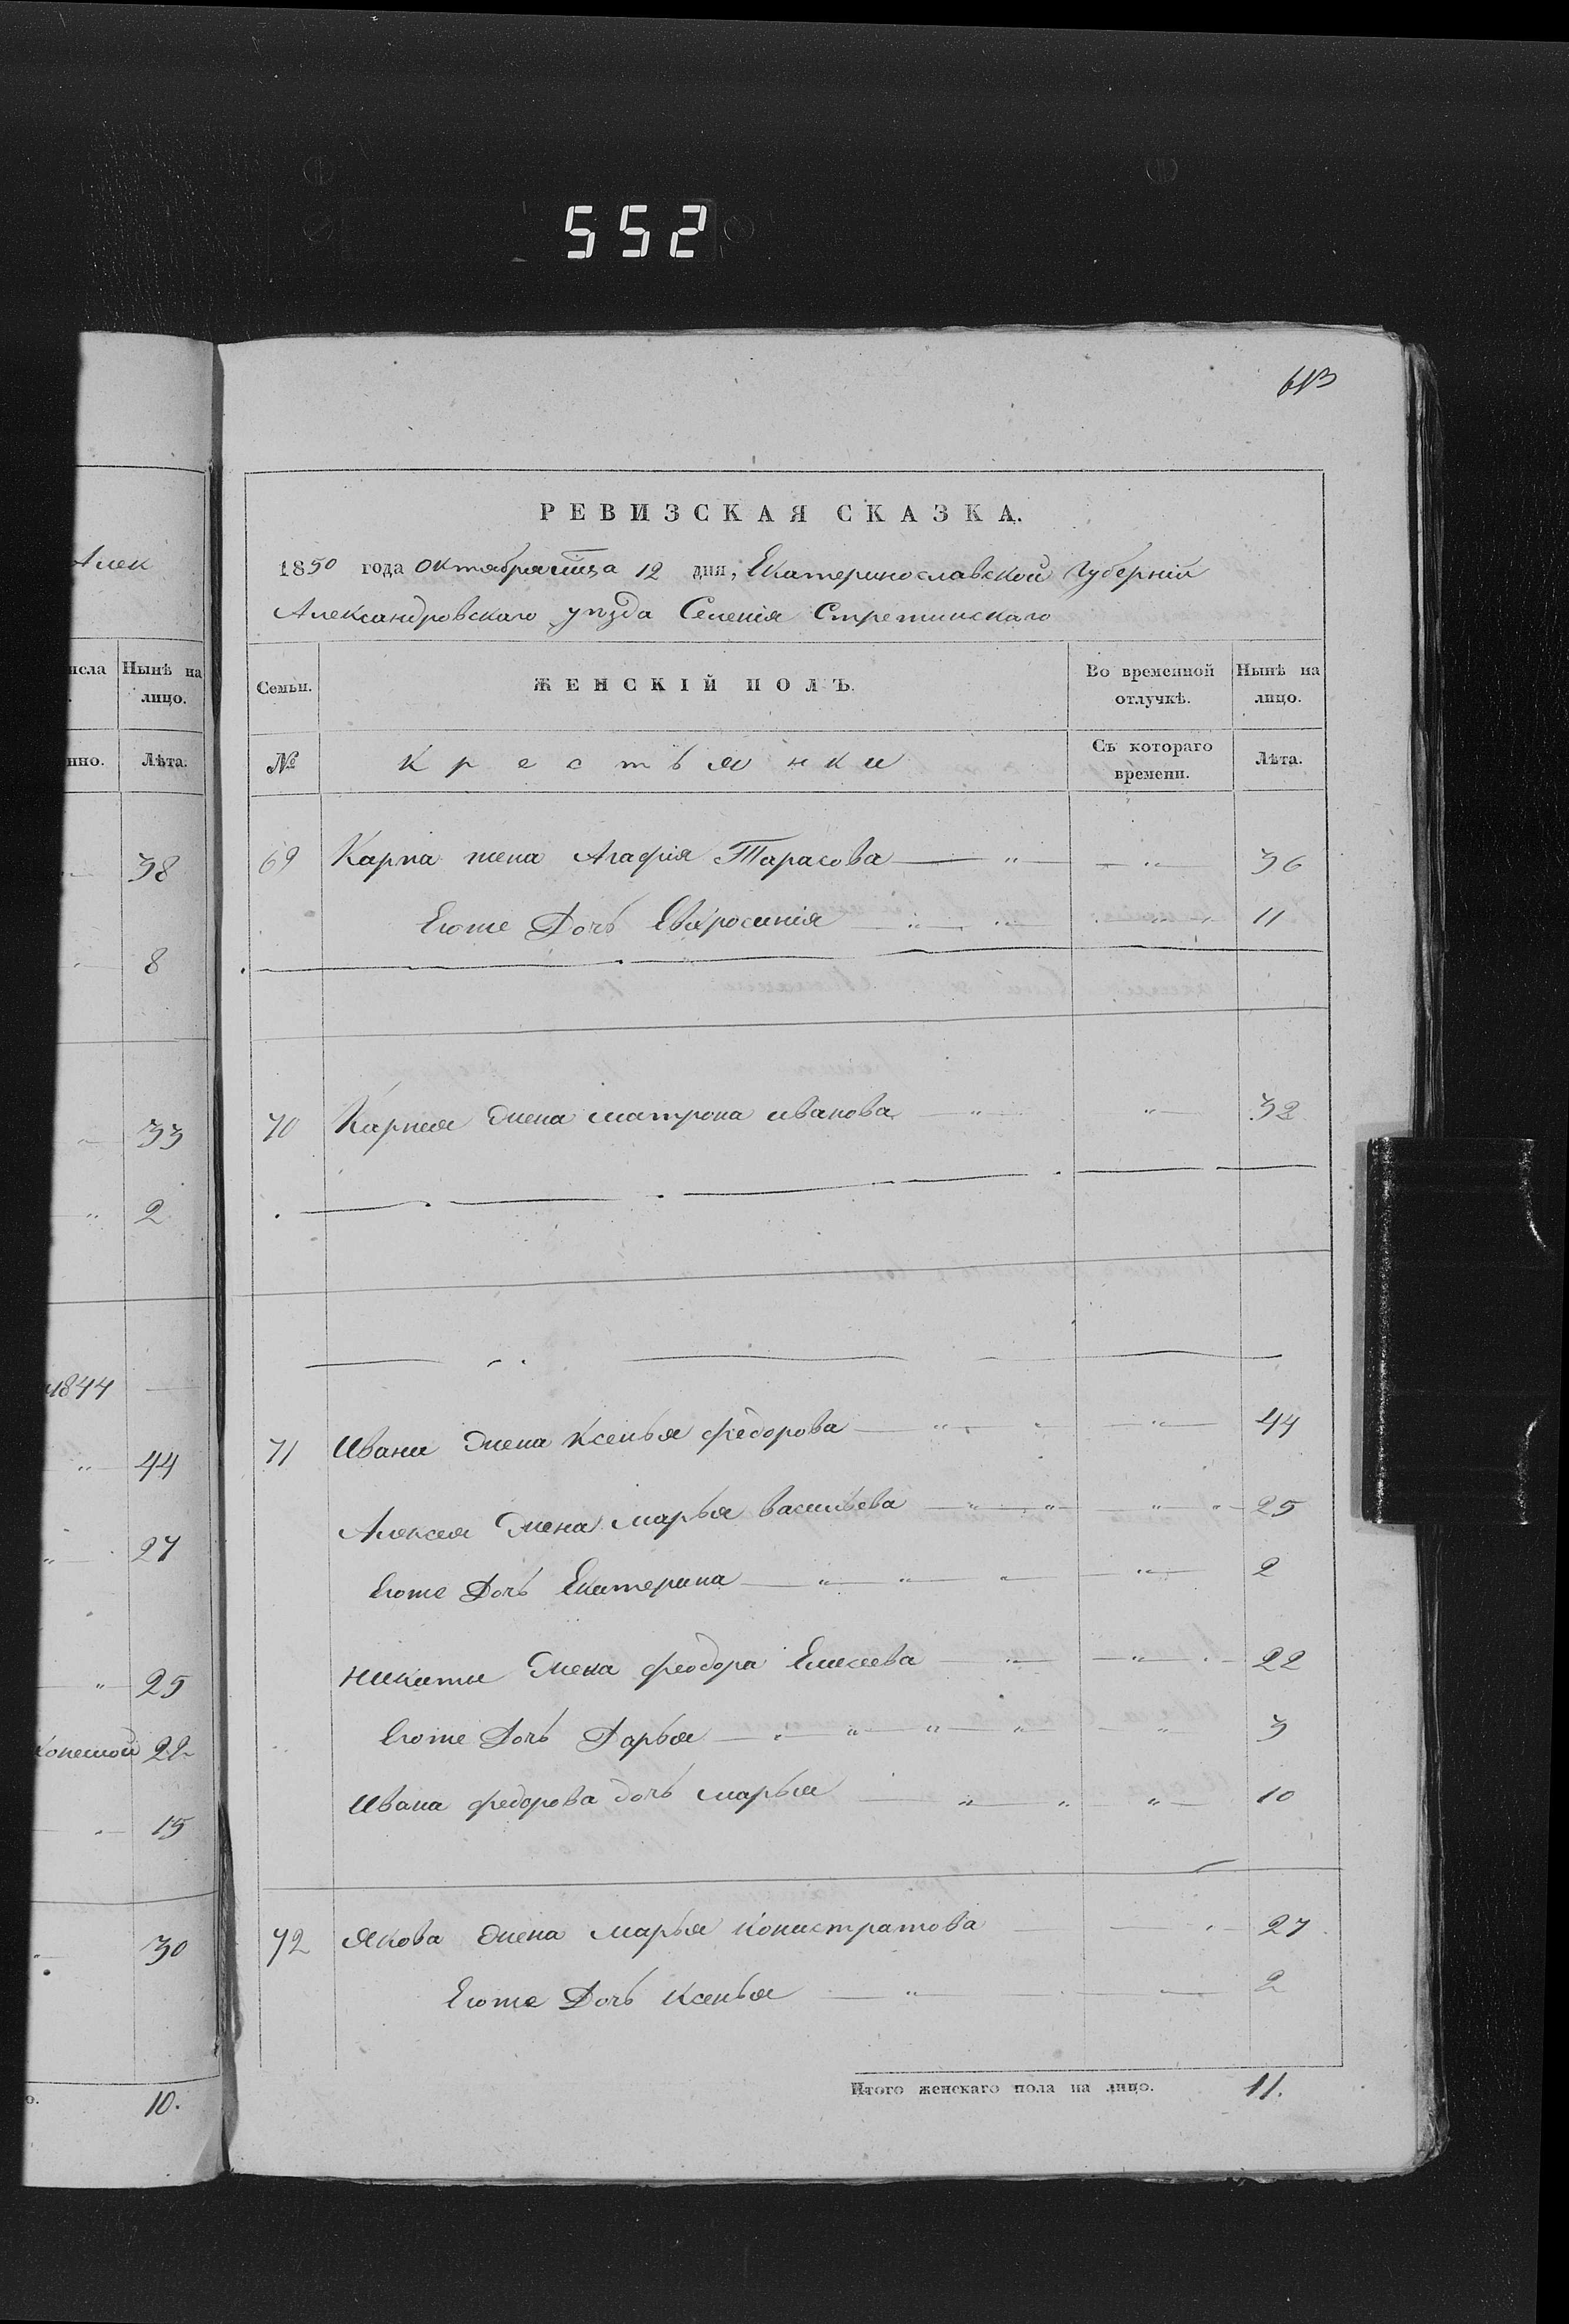 552
613
РЕВИЗСКАЯ СКАЗКА.
1850 года Октября мца 12 дня, Екатеринославской Губерніи
Александровскаго уѣзда Селенія Стретинскаго
Алек
исла
Нынѣ на лицо.
нно.
Лѣта.
38
8
33
2
1844
44
27
25
22
15
30
10.
Семьи. ЖЕНСКІЙ ПОЛЪ. Во временной отлучкѣ. Нынѣ на лицо.
№ крестьянки Съ котораго времени. Лѣта.
69 Карпа жена Агафія Тарасова — " — — " — 36
Егоже Дочь Евфросинія — " — " — — " — 11
70 Карнея жена матрона иванова — " — " — 32
71 Ивана жена Ксенья федорова — " — " — — " — 44
Алексея жена марья васильева — " — " — — " — " — 25
Егоже Дочь Екатерина — " — " — " — " — 2
Никиты жена феодора Елисеева — " — — " — 22
Егоже Дочь Дарья — " — " — " — " — " 3
Ивана федорова дочь марья — " — " — " — 10
72 Якова жена марья Конистратова — — 27
Егоже Дочь Ксенья — " — — 2
Итого женскаго пола на лицо. 11.